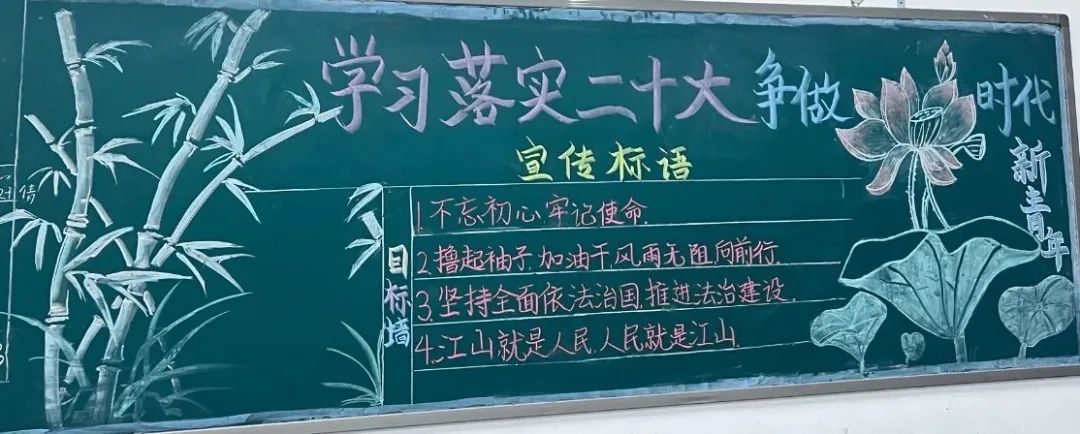 学习落实二十大争做时代
新青年
宣传标语
目标墙
1.不忘初心牢记使命.
2.撸起袖子加油干,风雨无阻向前行.
3.坚持全面依法治国,推进法治建设.
4.江山就是人民,人民就是江山.
倩